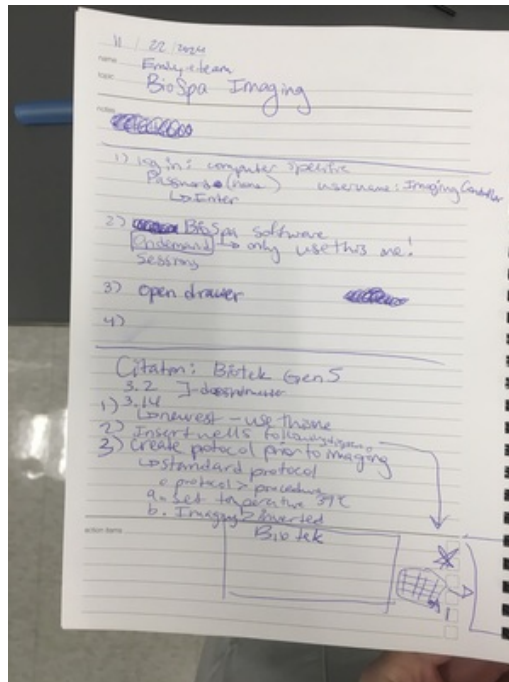 11 / 22 / 2024
name Emily + team
topic BioSpa Imaging
notes
1) log in: computer specific
Password (none) username: Imaging Controller
↳ Enter
2) BioSpa software
Ondemand ↳ only use this one!
Sessions
3) open drawer
4)
Citation: Biotek Gen5
3.2
1) 3.14
↳ newest - use this one
2) Insert wells following
3) Create protocol prior to imaging
↳ standard protocol
o protocol > procedure
a. Set temperature 37°C
b. Imaging > inverted
action items
Biotek
A1